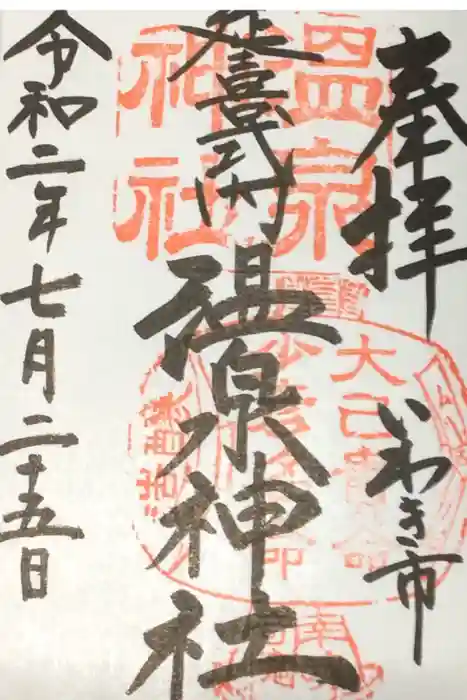 奉拝
いわき市
延喜式内
温泉神社
令和二年七月二十五日
温泉
神社
大己貴命
少彦名命